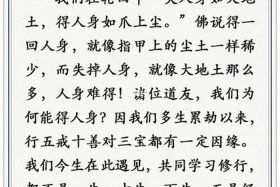 我们在轮回中“失人身如大地
土，得人身如爪上尘。”佛说得一
回人身，就像指甲上的尘土一样稀
少，而失掉人身，就像大地土那么
多，人身难得！诸位道友，我们为
何能得人身？因我们多生累劫以来，
行五戒十善对三宝都有一定因缘。
我们今生在此遇见，共同学习修行，